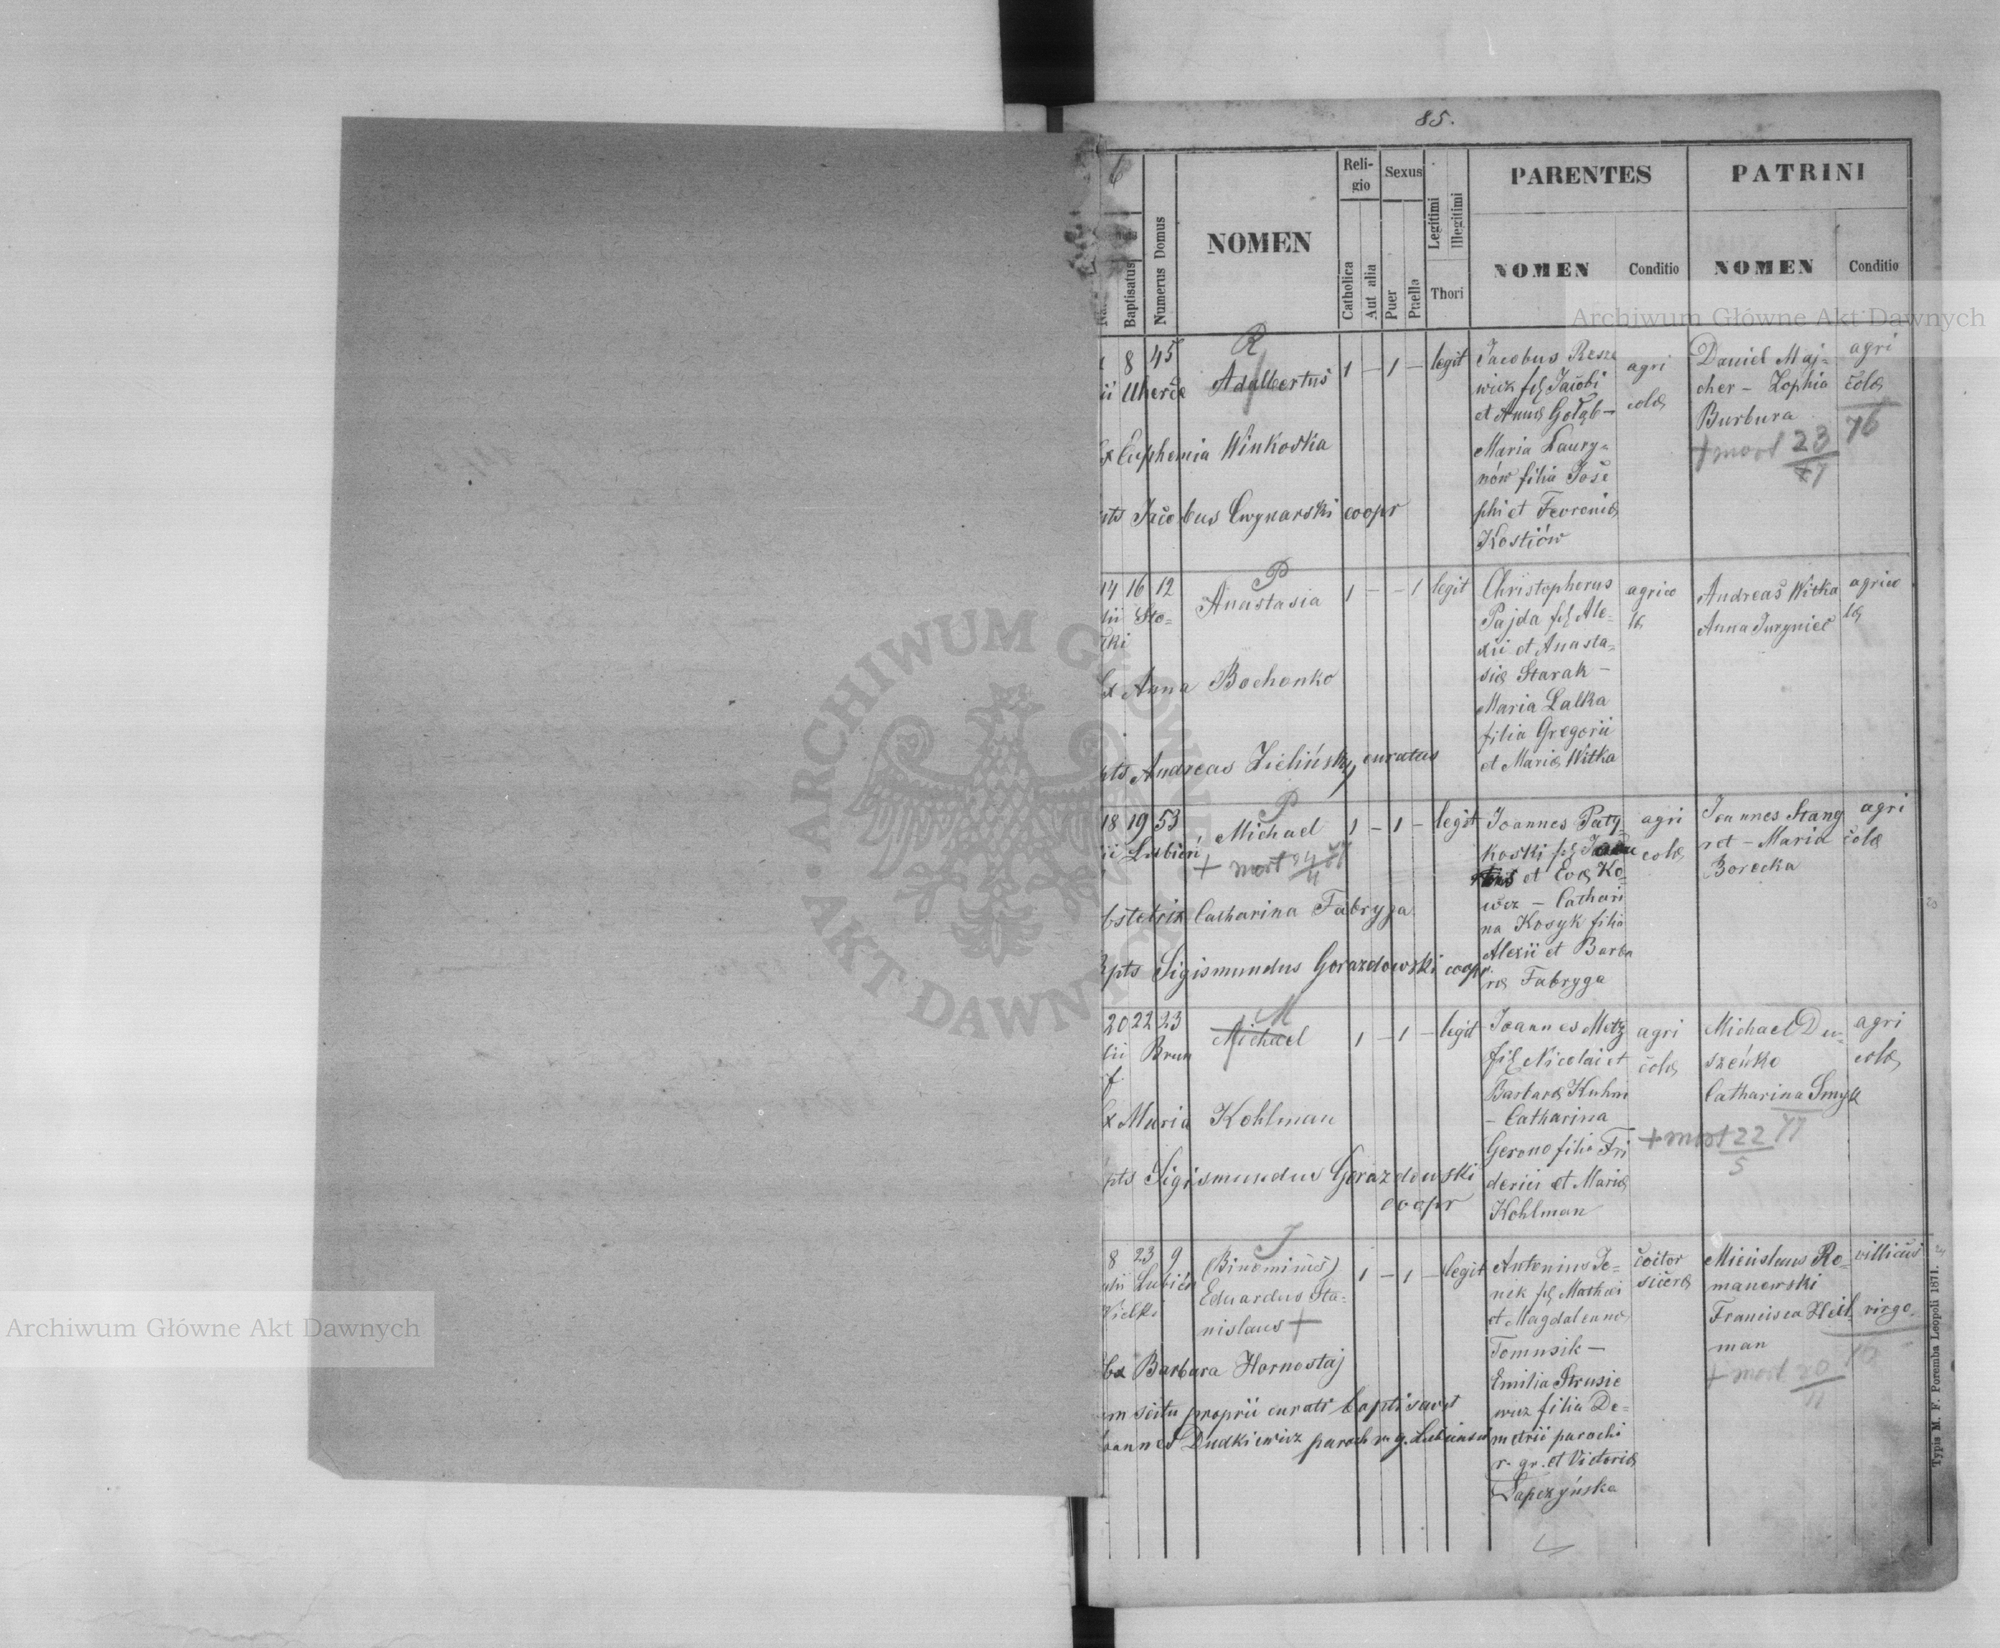 85.
6
Reli-
gio
Sexus
Legitimi
Illegitimi
PARENTES
PATRINI
Baptisatus
Numerus Domus
NOMEN
Catholica
Aut alia
Puer
Puella
Thori
NOMEN
Conditio
NOMEN
Conditio
R
8 45
Uherce
Adalbertus
1 - 1 - legit
Jacobus Resze
wicz fil Jacobi
et Annæ Gołąb -
Maria Laury-
nów filia Jose
phi et Fevroniæ
Kostiów
agri
colæ
Daniel Maj-
cher - Zophia
Burbura
agri
colæ
+ mort 23 76
Ex Euphemia Winkoska
pts Jacobus Cwynarski coopr
P
14 16 12
Sto-
Anastasia
1 - - 1 legit
Christophorus
Pajda fil Ale-
xii et Anasta-
siæ Starak -
Maria Lalka
filia Gregorii
et Mariæ Witka
agrico
læ
Andreas Witka
Anna Juryniec
agrico
læ
Anna Bochonko
pts Andreas Zieliński, curatus
P
18 19 53
Lubień
Michael
+ mort
1 - 1 - legit
Joannes Paty-
koski fil
et Evæ Ko-
wcz - Cathari
na Kosyk filia
Alexii et Barba
ræ Fabryga
agri
colæ
Joannes Stang
ret - Maria
Borecka
agri
colæ
bstetrix Catharina Fabryga
Bpts Sigismundus Gorazdowski coopr
M
20 22 23
Brun
f
Michael
1 - 1 - legit
Joannes Metz
fil Nicolai et
Barbaræ Kuhni
- Catharina
Gerono filia Fri
derici et Mariæ
Kohlman
agri
colæ
Michael Du-
szeńko
Catharina Smyk
agri
colæ
+ mort 22 77
5
Maria Kohlman
pts Sigismundus Gorazdowski
coopr
J
8 23 9
Lubień
Wielki
(Binominus)
Eduardus Sta-
nislaus +
1 - 1 - legit
Antonius Je-
nek fil Mathæi
et Magdalenæ
Tomusik -
Emilia Strusie
wicz filia De-
metrii parochi
r. gr. et Victoriæ
Łapczyńska
coitor
siceræ
Mieislaus Ro-
manowski
Francisca Heil
man
villicus
virgo
+ mort 20
11
Barbara Hornostaj
scitu proprii curati baptisavit
Joannes Dudkiewicz paroch r. g. Lubiensis
Typis M. F. Poremba Leopoli 1871.
Archiwum Główne Akt Dawnych
ARCHIWUM GŁÓWNE AKT DAWNYCH
Archiwum Główne Akt Dawnych